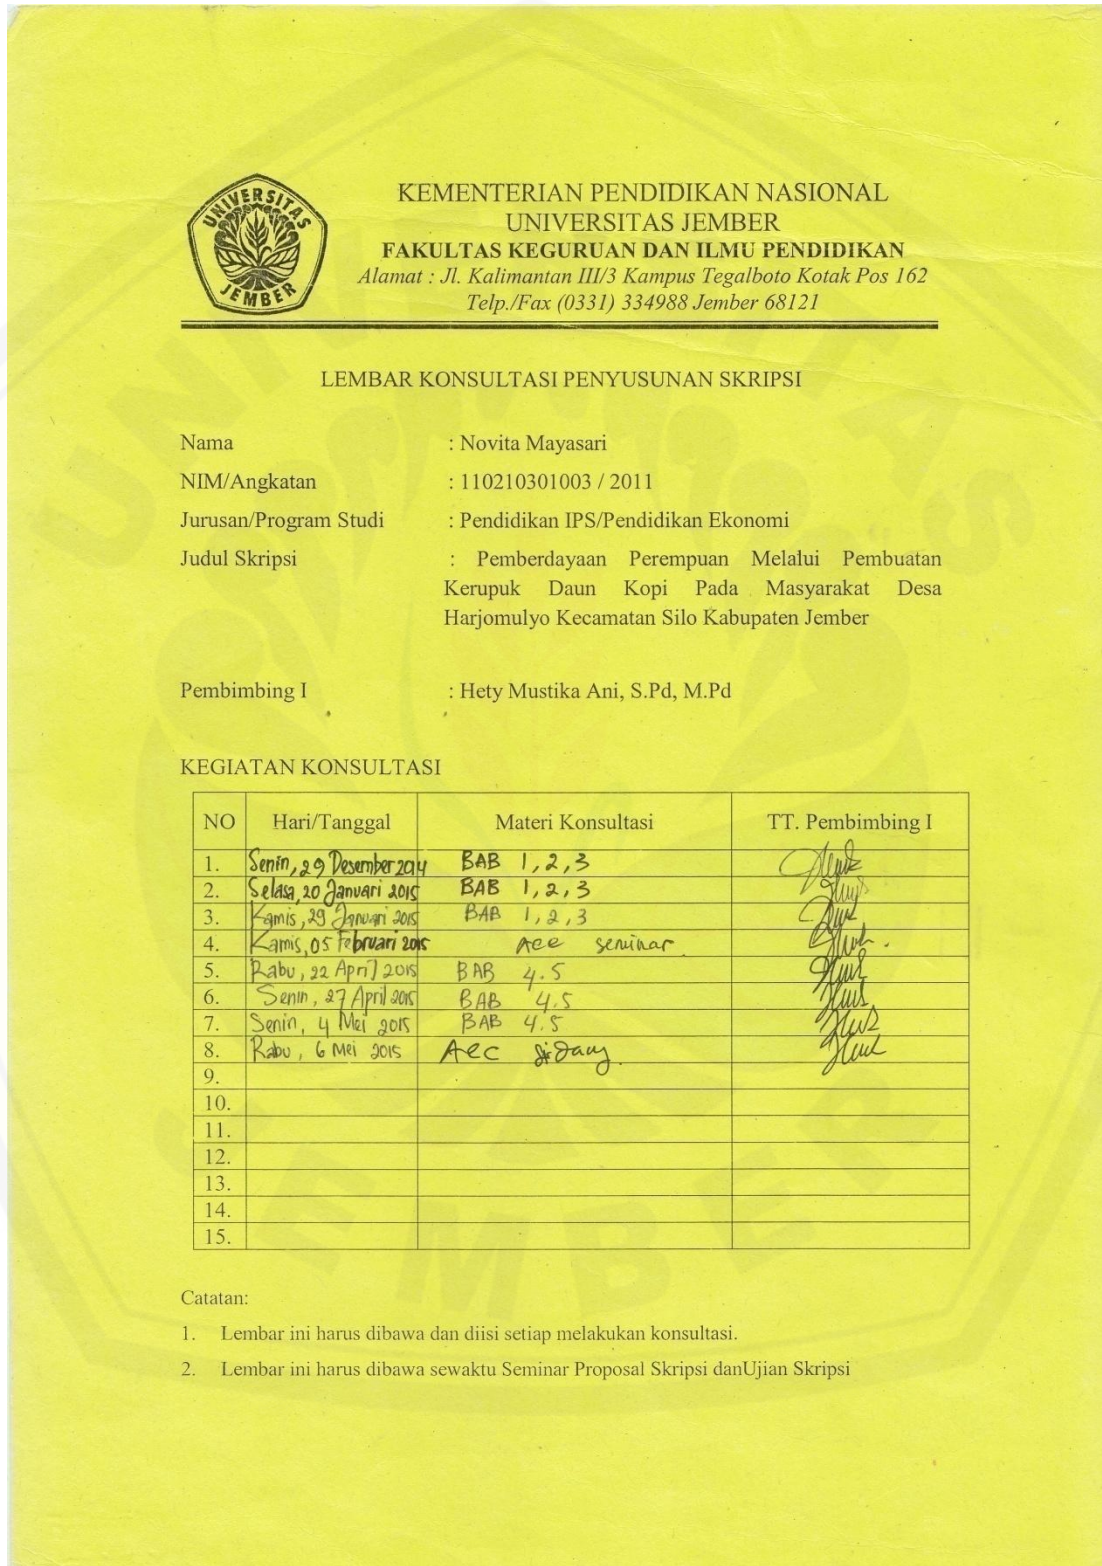 UNIVERSITAS
JEMBER
KEMENTERIAN PENDIDIKAN NASIONAL
UNIVERSITAS JEMBER
FAKULTAS KEGURUAN DAN ILMU PENDIDIKAN
Alamat : Jl. Kalimantan III/3 Kampus Tegalboto Kotak Pos 162
Telp./Fax (0331) 334988 Jember 68121
LEMBAR KONSULTASI PENYUSUNAN SKRIPSI
Nama : Novita Mayasari
NIM/Angkatan : 110210301003 / 2011
Jurusan/Program Studi : Pendidikan IPS/Pendidikan Ekonomi
Judul Skripsi : Pemberdayaan Perempuan Melalui Pembuatan
Kerupuk Daun Kopi Pada Masyarakat Desa
Harjomulyo Kecamatan Silo Kabupaten Jember
Pembimbing I : Hety Mustika Ani, S.Pd, M.Pd
KEGIATAN KONSULTASI
NO Hari/Tanggal Materi Konsultasi TT. Pembimbing I
1. Senin, 29 Desember 2014 BAB 1, 2, 3
2. Selasa, 20 Januari 2015 BAB 1, 2, 3
3. Kamis, 29 Januari 2015 BAB 1, 2, 3
4. Kamis, 05 Februari 2015 Acc seminar
5. Rabu, 22 April 2015 BAB 4.5
6. Senin, 27 April 2015 BAB 4.5
7. Senin, 4 Mei 2015 BAB 4.5
8. Rabu, 6 Mei 2015 Acc sidang.
9.
10.
11.
12.
13.
14.
15.
Catatan:
1. Lembar ini harus dibawa dan diisi setiap melakukan konsultasi.
2. Lembar ini harus dibawa sewaktu Seminar Proposal Skripsi danUjian Skripsi